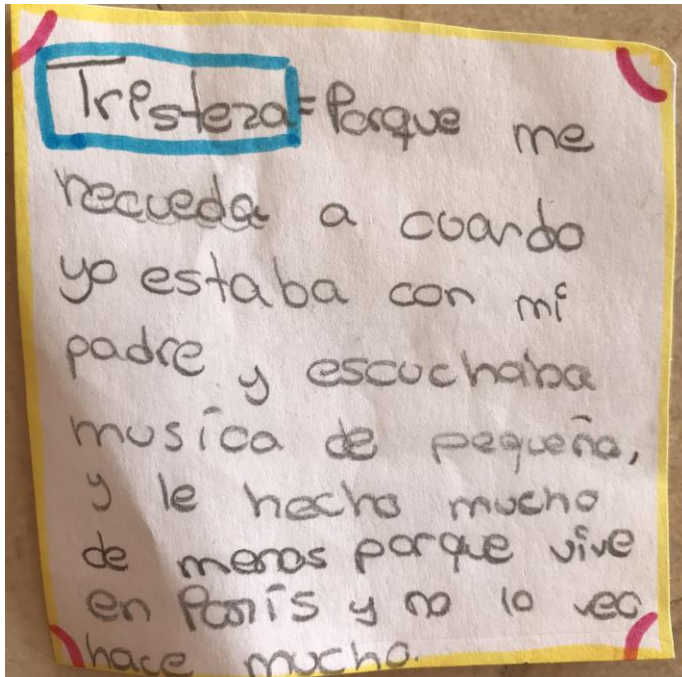 Tristeza = Porque me
recueda a cuando
yo estaba con mi
padre y escuchaba
musica de pequeña,
y le hecho mucho
de menos porque vive
en París y no lo veo
hace mucho.